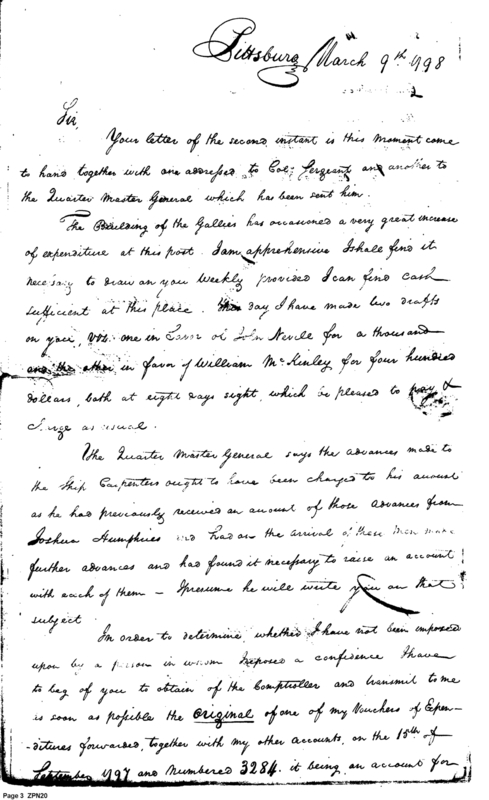 Pittsburg March 9th 1798
Sir,
Your letter of the second instant is this moment come
to hand together with one addressed to Col: Sergeant and another to
the Quarter Master General which has been sent him.
The Building of the Gallies has occasioned a very great increase
of expenditure at this post. I am apprehensive I shall find it
necessary to draw on you Weekly provided I can find cash
sufficient at this place. day I have made two drafts
on you, Viz. one in favor of John Nevile for a thousand
and the other in favor of William McKinley for four hundred
dollars, both at eight days sight, which be pleased to pay &
charge as usual.
The Quarter Master General says the advances made to
the Ship Carpenters ought to have been charged to his account
as he had previously received an account of those advances from
Joshua Humphries and had on the arrival of these men made
further advances and had found it necessary to raise an account
with each of them – I presume he will write you on that
subject
In order to determine whether I have not been imposed
upon by a person in whom I reposed a confidence I have
to beg of you to obtain of the Comptroller and transmit to me
as soon as possible the original of one of my Vouchers of Expen-
-ditures forwarded, together with my other accounts, on the 15th of
September 1797 and numbered 3284. it being an account for
Page 3 ZPN20